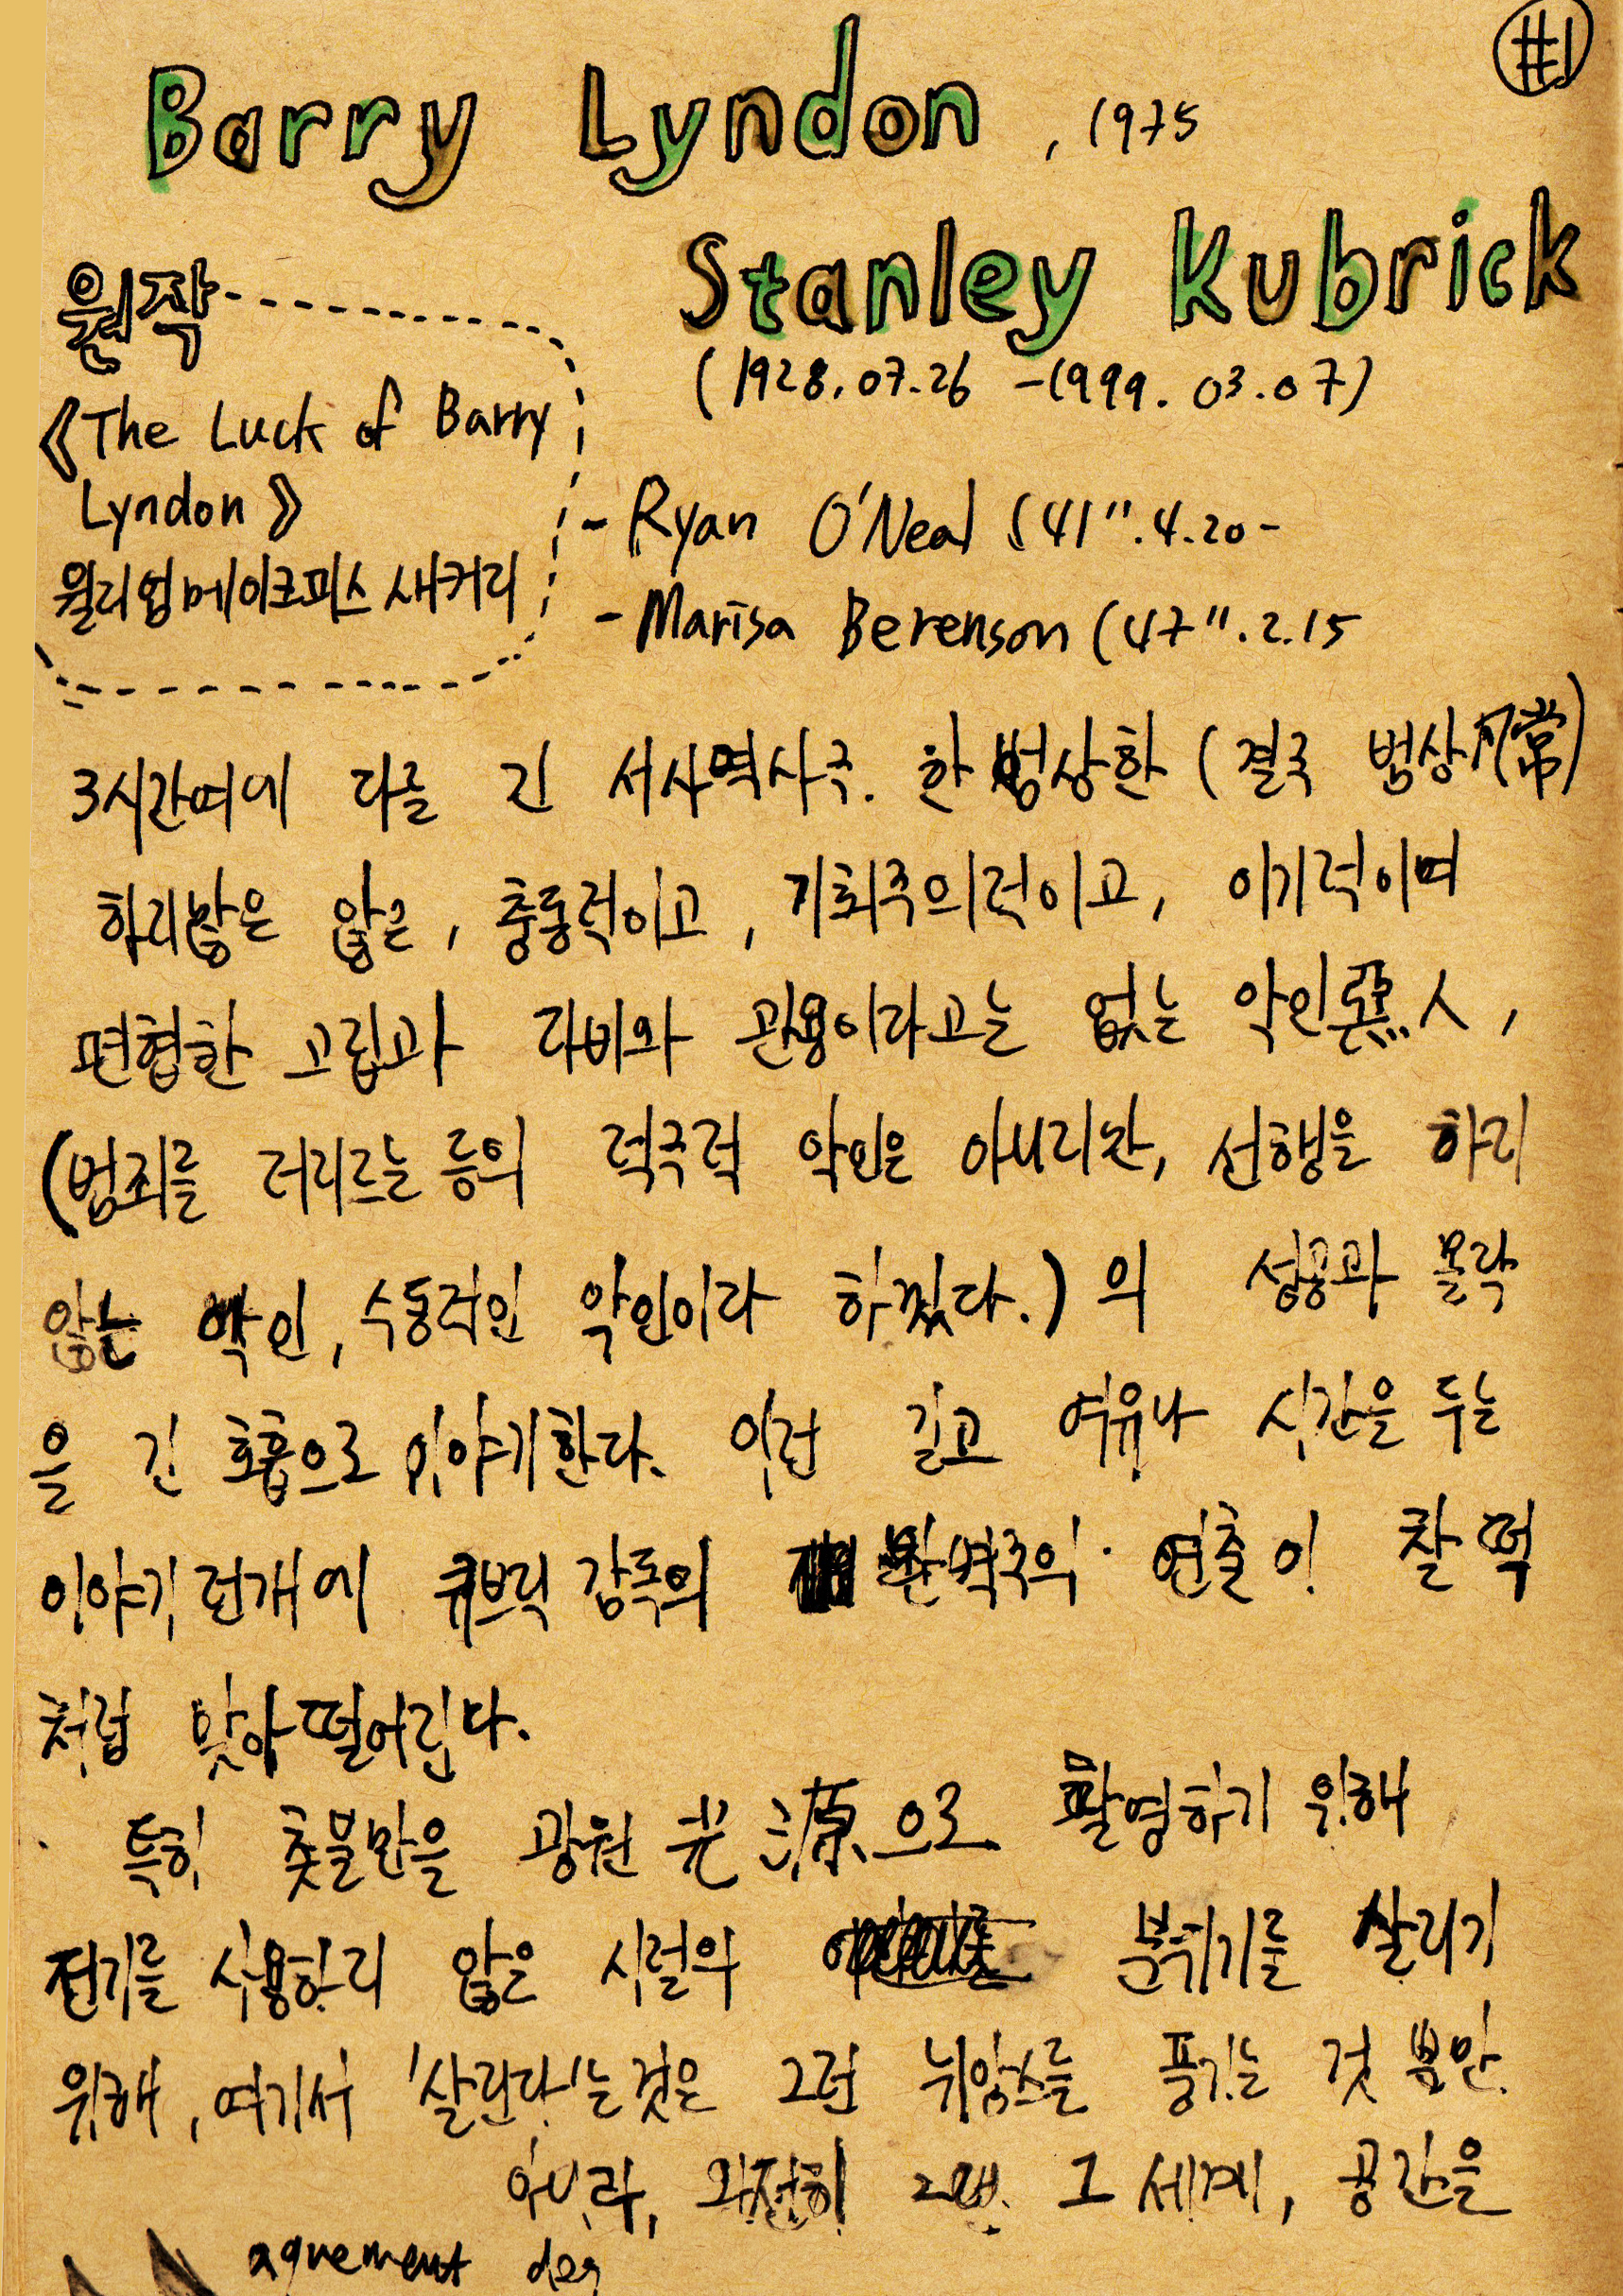 #1
Barry Lyndon, 1975
Stanley Kubrick
(1928.07.26 - 1999.03.07)
원작
《The Luck of Barry
Lyndon》
윌리엄메이크피스 새커리
- Ryan O'Neal (41".4.20-
- Marisa Berenson (47".2.15
3시간여에 다를 긴 서사역사극. 한 범상한 (결국 범상凡常)
하지많은 않은, 충동적이고, 기회주의적이고, 이기적이며
편협한 고립과 자비와 관용이라고는 없는 악인惡人,
(범죄를 저지르는 등의 적극적 악인은 아니지만, 선행을 하지
않는 악인, 수동적인 악인이라 하겠다.)의 성공과 몰락
을 긴 호흡으로 이야기한다. 이런 길고 여유나 시간을 두는
이야기 전개에 큐브릭 감독의 완벽주의 연출이 찰떡
처럼 맞아 떨어진다.
특히 촛불만을 광원光源으로 촬영하기 위해
전기를 사용하지 않은 시절의 분위기를 살리기
위해, 여기서 '살린다'는것은 그런 뉘앙스를 풍기는 것 뿐만
아니라, 완전히 그 세계, 공간을